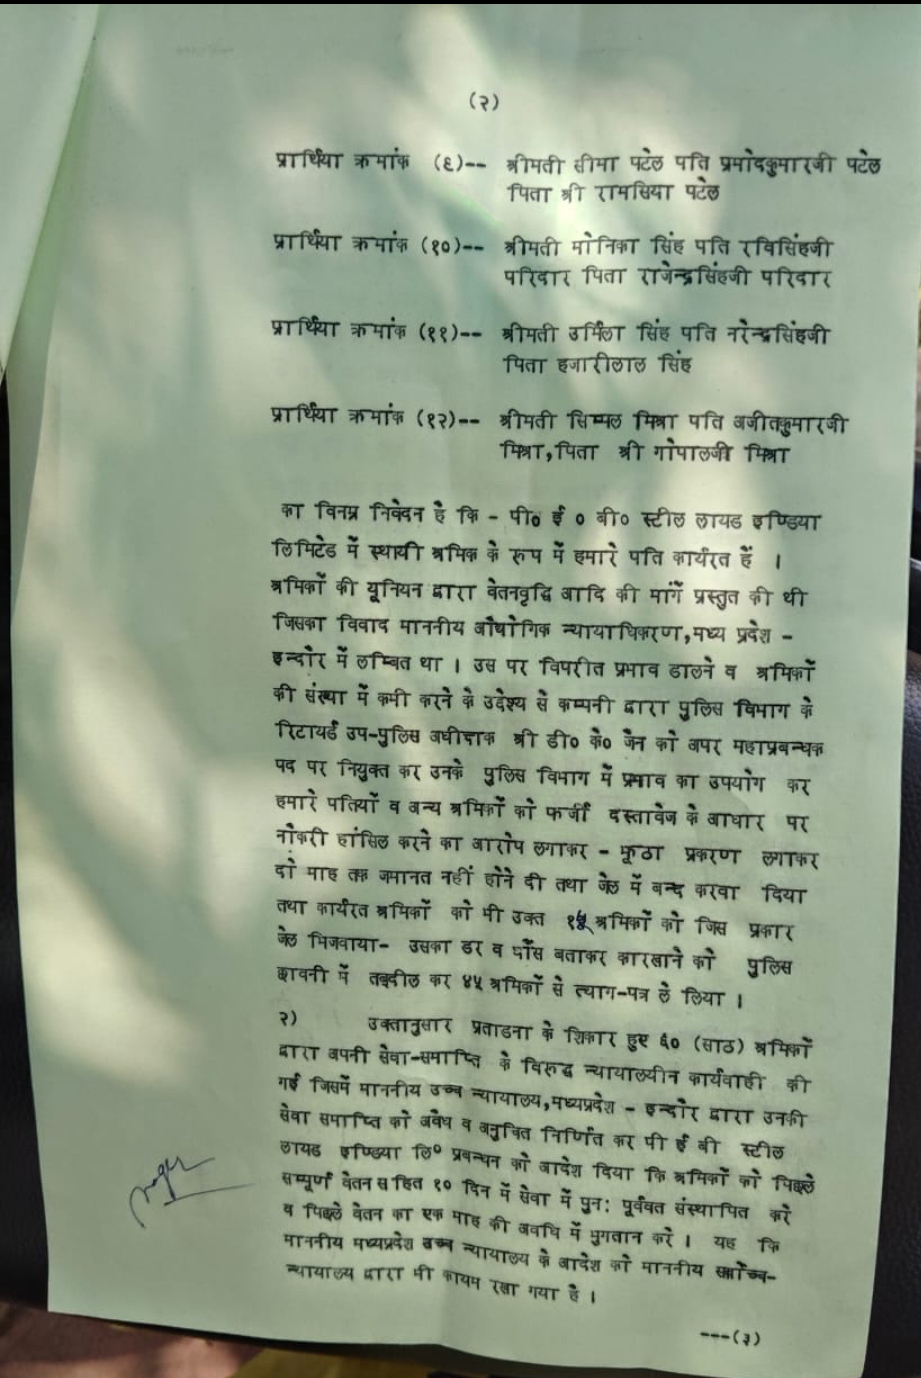 (२)
प्रार्थिया क्रमांक (९)-- श्रीमती सीमा पटेल पति प्रमोदकुमारजी पटेल
पिता श्री रामसिया पटेल
प्रार्थिया क्रमांक (१०)-- श्रीमती मोनिका सिंह पति रविसिंहजी
परिदार पिता राजेन्द्रसिंहजी परिदार
प्रार्थिया क्रमांक (११)-- श्रीमती उर्मिला सिंह पति नरेन्द्रसिंहजी
पिता हजारीलाल सिंह
प्रार्थिया क्रमांक (१२)-- श्रीमती सिम्पल मिश्रा पति अजीतकुमारजी
मिश्रा,पिता श्री गोपालजी मिश्रा
का विनम्र निवेदन है कि - पी० ई ० बी० स्टील लायड इण्डिया
लिमिटेड में स्थायी श्रमिक के रूप में हमारे पति कार्यरत हैं ।
श्रमिकों की यूनियन द्वारा वेतनवृद्धि आदि की मांगें प्रस्तुत की थी
जिसका विवाद माननीय औद्योगिक न्यायाधिकरण,मध्य प्रदेश -
इन्दौर में लम्बित था । उस पर विपरीत प्रभाव डालने व श्रमिकों
की संख्या में कमी करने के उद्देश्य से कम्पनी द्वारा पुलिस विभाग के
रिटायर्ड उप-पुलिस अधीक्षक श्री डी० के० जैन को अपर महाप्रबन्धक
पद पर नियुक्त कर उनके पुलिस विभाग में प्रभाव का उपयोग कर
हमारे पतियों व अन्य श्रमिकों को फर्जी दस्तावेज के आधार पर
नौकरी हांसिल करने का आरोप लगाकर - झूठा प्रकरण लगाकर
दो माह तक जमानत नहीं होने दी तथा जेल में बन्द करवा दिया
तथा कार्यरत श्रमिकों को भी उक्त १५ श्रमिकों को जिस प्रकार
जेल भिजवाया- उसका डर व धौंस बताकर कारखाने को पुलिस
छावनी में तब्दील कर ४५ श्रमिकों से त्याग-पत्र ले लिया ।
२) उक्तानुसार प्रताडना के शिकार हुए ६० (साठ) श्रमिकों
द्वारा अपनी सेवा-समाप्ति के विरुद्ध न्यायालयीन कार्यवाही की
गई जिसमें माननीय उच्च न्यायालय,मध्यप्रदेश - इन्दौर द्वारा उनकी
सेवा समाप्ति को अवैध व अनुचित निर्णित कर पी ई बी स्टील
लायड इण्डिया लि० प्रबन्धन को आदेश दिया कि श्रमिकों को पिछले
सम्पूर्ण वेतन सहित १० दिन में सेवा में पुन: पूर्ववत संस्थापित करें
व पिछले वेतन का एक माह की अवधि में भुगतान करें । यह कि
माननीय मध्यप्रदेश उच्च न्यायालय के आदेश को माननीय सर्वोच्च-
न्यायालय द्वारा भी कायम रखा गया है ।
---(३)